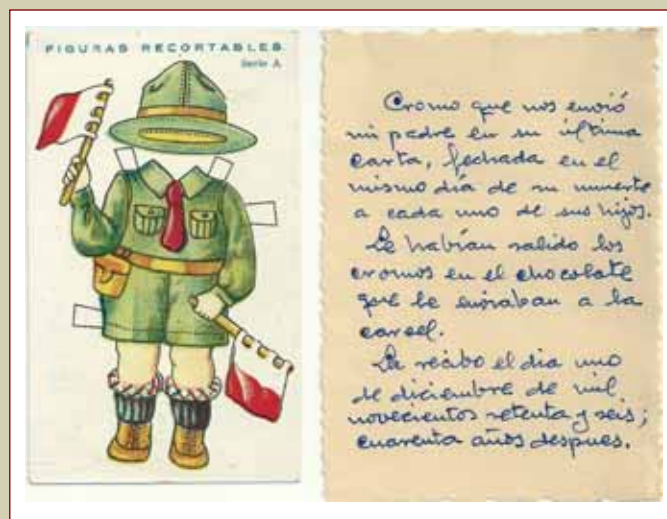 FIGURAS RECORTABLES
Serie A
Cromo que nos envió
mi padre en su última
carta, fechada en el
mismo día de su muerte
a cada uno de sus hijos.
Le habían salido los
cromos en el chocolate
que le enviaban a la
carcel.
La recibo el dia uno
de diciembre de mil
novecientos setenta y seis;
cuarenta años despues.